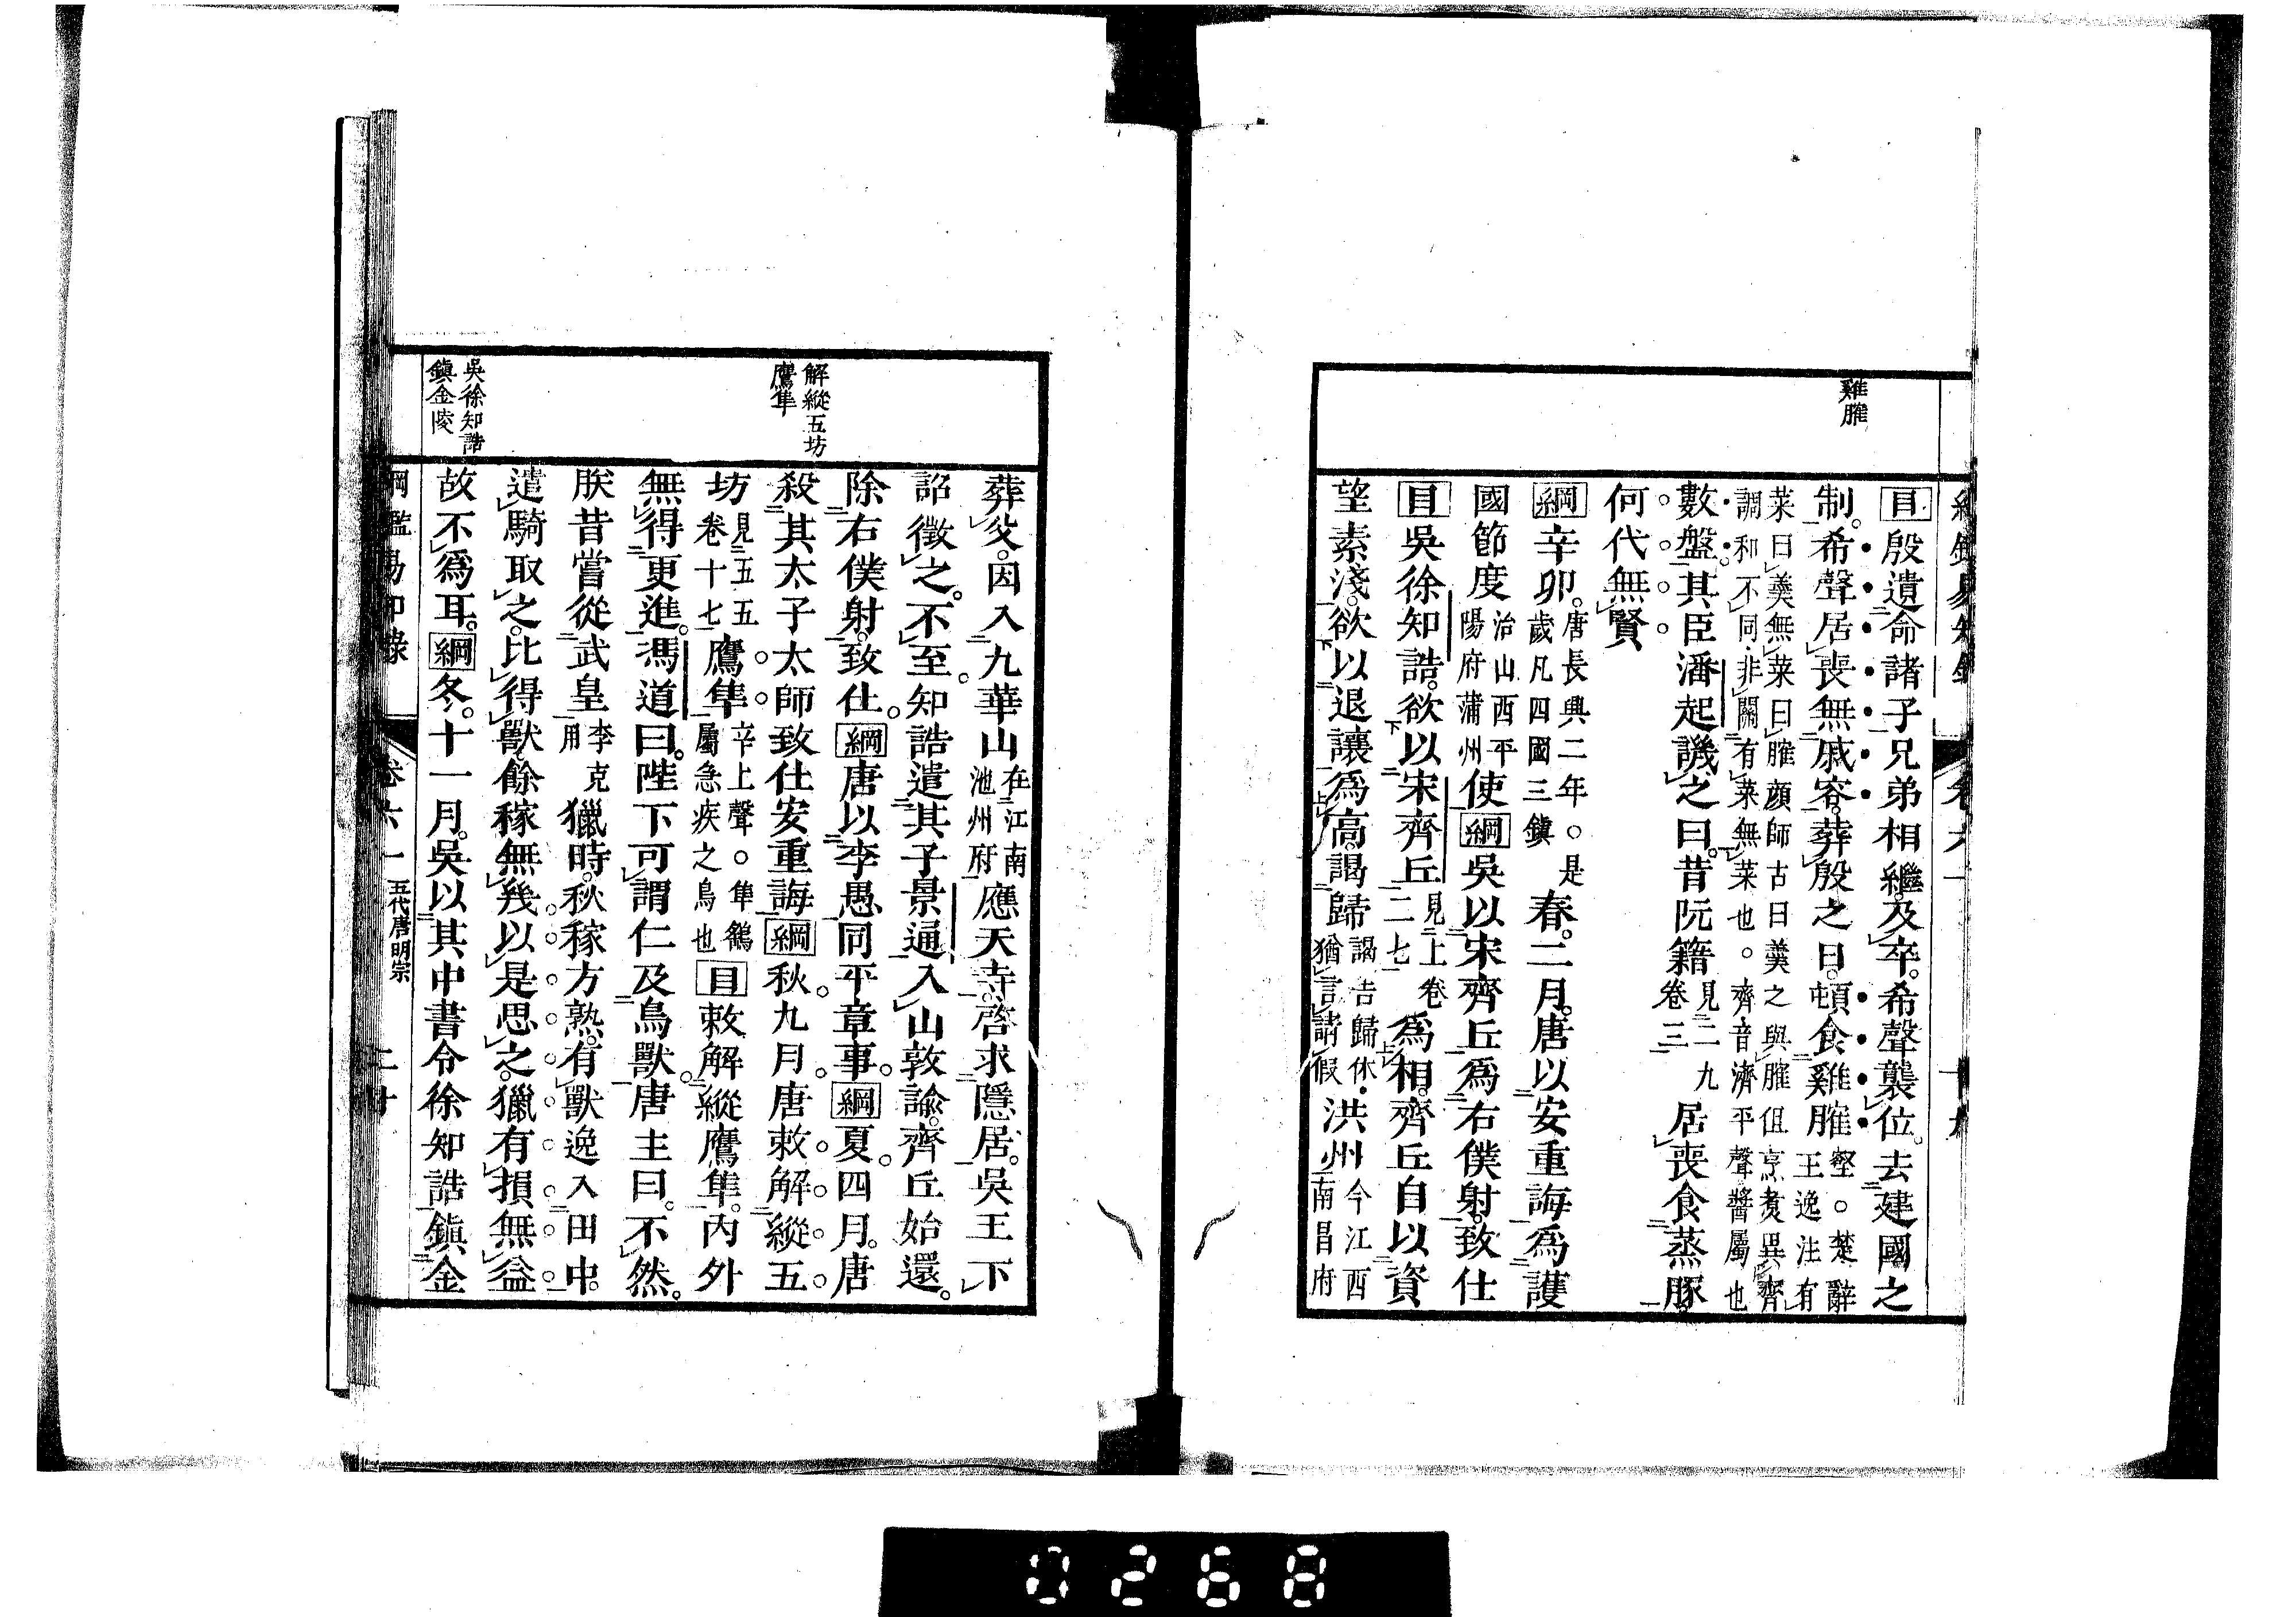 雞臛
目殷遺命諸子兄弟相繼及卒希聲襲位去建國之
制希聲居喪無戚容葬殷之日頓食雞臛壑。楚辭王逸注有
菜曰羹無菜曰臛顏師古曰羹之與臛但烹煑異齊
調和不同非關有菜無菜也。齊音濟平聲醬屬也
數盤其臣潘起譏之曰昔阮籍見二九卷三居喪食蒸豚
何代無賢
綱辛卯唐長興二年。是歲凡四國三鎮春二月唐以安重誨為護
國節度治山西平陽府蒲州使綱吳以宋齊丘為右僕射致仕
目吳徐知誥欲以宋齊丘見上卷二七為相齊丘自以資
望素淺欲以退讓為高謁歸謁告歸休猶言請假洪州今江西南昌府
解縱五坊
鷹隼
吳徐知誥
鎮金陵
葬父因入九華山在江南池州府應天寺啓求隱居吳王下
詔徵之不至知誥遣其子景通入山敦諭齊丘始還
除右僕射致仕綱唐以李愚同平章事綱夏四月唐
殺其太子太師致仕安重誨綱秋九月唐敕解縱五
坊見五五卷十七鷹隼辛上聲。隼鶻屬急疾之鳥也目敕解縱鷹隼內外
無得更進馮道曰陛下可謂仁及鳥獸唐主曰不然
朕昔嘗從武皇李克用獵時秋稼方熟有獸逸入田中
遣騎取之比得獸餘稼無幾以是思之獵有損無益
故不為耳綱冬十一月吳以其中書令徐知誥鎮金
綱鑑易知錄 卷六一 五代唐明宗 二十